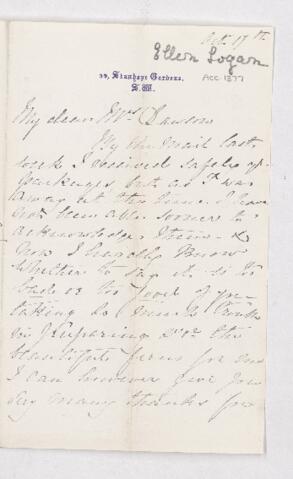 Oct. 17th
Ellen Logan
39, Stanhope Gardens,
S.W.
ACC 1377
My dear Mrs Dawson
By the mail last
week I received safely yr
packages but as I was
away at the time I have
not been able sooner to
acknowledge them &
now I hardly know
whether to say it is to
kind or too good of you
taking so much trouble
in preparing the
beautiful ferns for me
I can however give you
very many thanks for